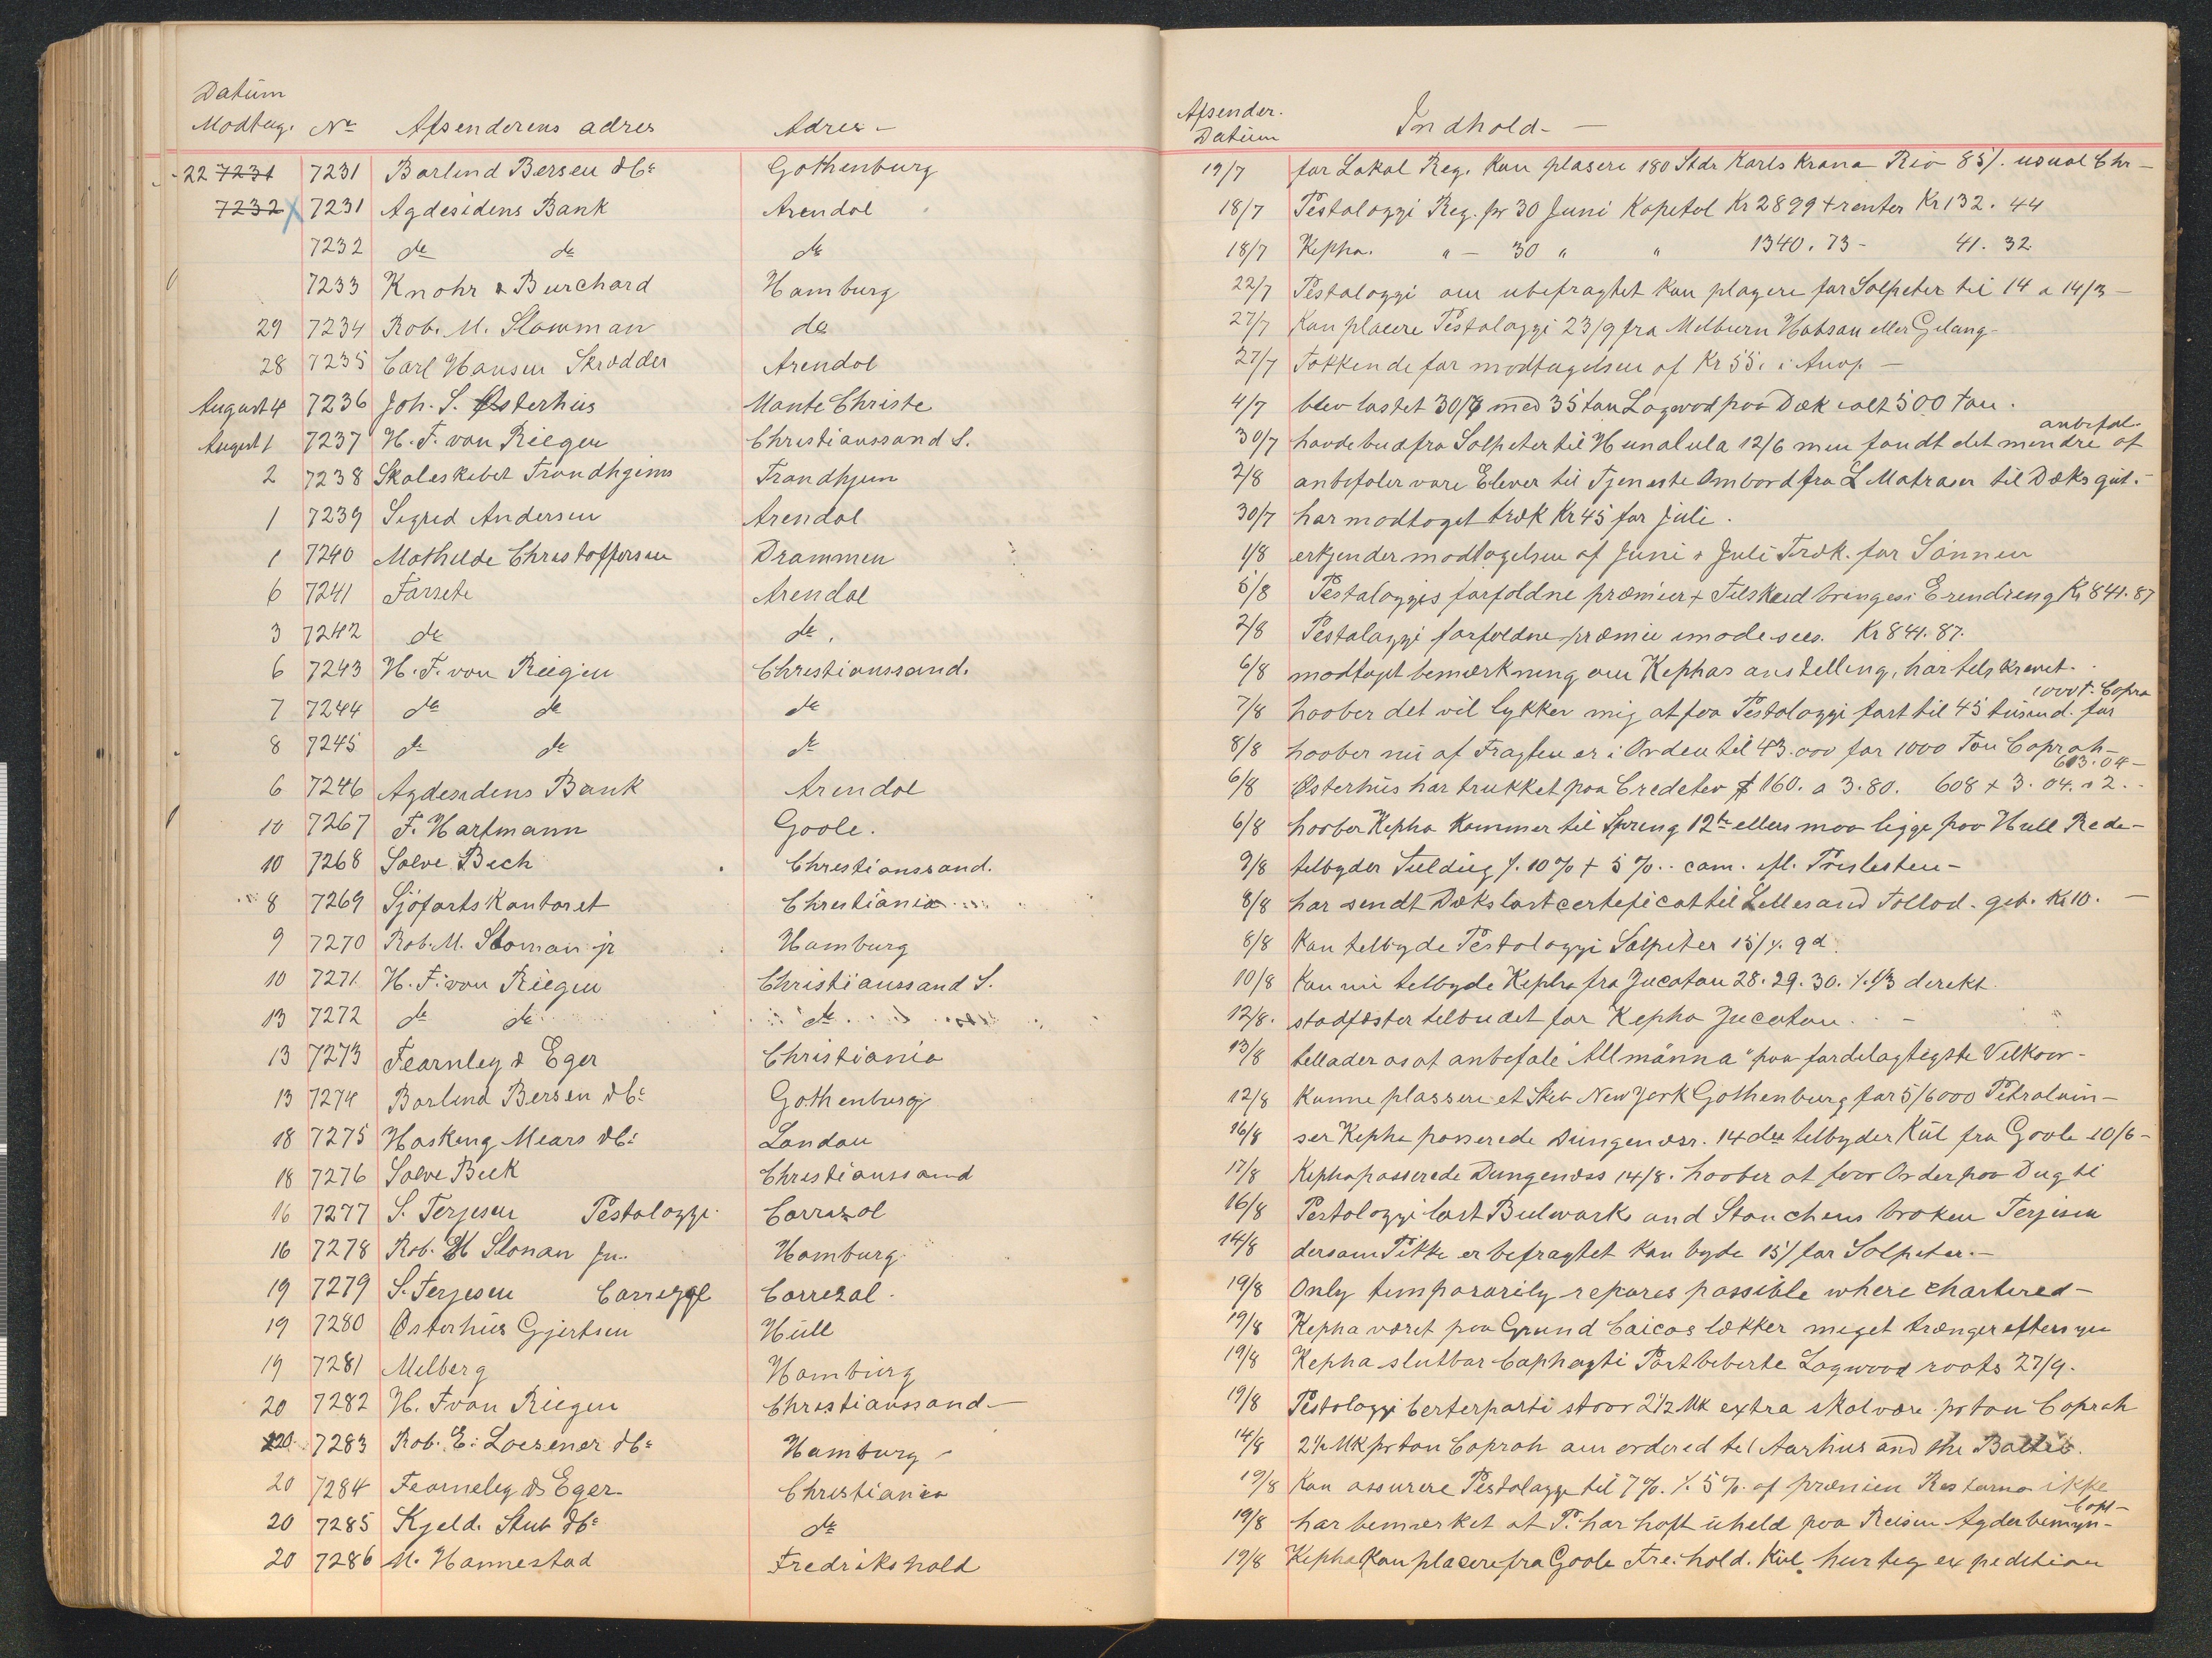 Datum
Modtag. No Afsenderens adres Adres - Afsender. Datum Indhold - —
22 7231 7231 Barlind Bersen & Co Gothenburg 19/7 for Lokal Reg. kan plasere 180 Stdr Karls Krana Rio 85/. usual Chr —
7232 7231 Agdesidens Bank Arendal 18/7 Pestalozzi Reg. pr 30 Juni Kapetal Kr 2899 + renter Kr 132. 44
7232 do do do 18/7 Kepha. " — 30 " " 1340. 73 - 41. 32
7233 Knohr & Burchard Hamburg 22/7 Pestalozzi om ubefragtet kan plasere for Salpeter til 14 a 14/3 —
29 7234 Rob. M. Slowman do 27/7 Kan placere Pestalozzi 23/9 fra Melburn eller Gelang -
28 7235 Carl Hansen Skrædder Arendal 27/7 Takkende for modtagelsen af Kr 55. i —
August 4 7236 Joh. S. Østerhus Monte Christe 4/7 blev lastet 30/7 med 35 tan Logwod paa Dæk ialt 500 tan.
August 1 7237 H. F. van Riegen Christianssand S. 30/7 havde bud fra Salpeter til Hunalula 12/6 men fandt det mindre anbefal. af
2 7238 Skoleskibet Trondhjem Trondhjem 2/8 anbefaler vare Elever til Tjeneste Ombord fra L Matraser til Dæksgut. -
1 7239 Sigrid Andersen Arendal 30/7 har modtaget træk Kr 45 for Juli.
1 7240 Mathilde Christoffersen Drammen 1/8 erkjender modtagelsen af Juni & Juli Træk. for Sønnen
6 7241 Farsete Arendal 5/8 Pestalozzis forfaldne præmier + Tilskud bringes i Erendreng Kr 841. 87
3 7242 do do. 2/8 Pestalazzi forfaldne præmie imodesees. Kr 841. 87.
6 7243 H. F. van Riegen Christianssand. 6/8 modtaget bemærkning om Kephas anstelling, har telskrevet.
7 7244 do do do 7/8 haaber det vil lykkes mig at faa Pestalozzi fart til 45 tusind. for 1000 t. Copra
8 7245 do do do 8/8 haaber nu at Fragten er i Orden til 43.000 for 1000 Ton Coprah -
6 7246 Agdesidens Bank Arendal 6/8 Østerhus har trukket paa Credetev $ 160. a 3.80. 608 + 3. 04. a 2. - 613.04 -
10 7267 F. Hartmann Goole. 6/8 haaber Kepha kommer til Spreng 12te ellers maa ligge paa Hull Rede -
10 7268 Salve Bech Christianssand. 9/8 telbyder /. 10% + 5%. cam.
8 7269 Sjøfartskantoret Christiania 8/8 har sendt Dækslastcerteficat til Lillesand Tollod. geb. Kr 10. —
9 7270 Rob. M. Sloman jr Hamburg 8/8 Kan telbyde Pestalozzi Salpeter 15/. 9d
10 7271 H. F. van Riegen Christianssand S. 10/8 Kan nu telbyde Kepha fra Jucatan 28. 29. 30. /. 1/3 direkt
13 7272 do do do 12/8. stadfæster telbudet for Kepha Jucatan. —
13 7273 Fearnley & Eger Christiania 13/8 tellader os at anbefale "Allmänna" paa fordelagtigste Vilkaar -
13 7274 Barlind Bersen & Co Gothenburg 12/8 Kunne plassere et Skeb New York Gothenburg for 5/6000 Petraluim -
18 7275 Hasking Mears & Co Landan 16/8 ser Kepha passerede Dungenæsr. 14de telbyder Kul fra Goole 10/6 -
18 7276 Salve Bek Christianssand 17/8 Kepha passerede Dungenæss 14/8. haaber at faar Order paa Dugti
16 7277 S. Terjesen Pestalozzi Carrazal 16/8 Pestalozzi lost Bulwark and Stanchens broken Terjesen
16 7278 Rob. M Slonan Jn. Hamburg 14/8 dersom P ikke er befragtet kan byde 15/ for Salpeter. -
19 7279 S. Terjesen Carrezal Carrezal. 19/8 Only tempararily repares passible where chartered -
19 7280 Østerhus Gjertsen Hull 19/8 Kepha været paa Grund Caicos lækker meget trænger eftersyn
19 7281 Melberg Hamburg 19/8 Kepha slutbar Logwood roots 27/9.
20 7282 H. F van Riegen Christianssand - 19/8 Pestalozzi Certerparti staar 2 1/2 Mk extra skal være pr ton Coprah
20 7283 Rob. E. Loesener & Co Hamburg 14/8 2 1/2 Mk pr tan Coprah om ordered tel Aarhus and the Baltic.
20 7284 Fearneley & Eger Christiania 19/8 Kan assurere Pestalazzi til 7%. /. 5%. af præmien ikke
20 7285 Kjeld. Stub & Co do 19/8 har bemærket at P. har haft uheld paa Reisen
20 7286 M. Hannestad Fredrikshald 19/8 Kepha Kan placere fra Goole Fre. hald. Kul. hurteg expedition